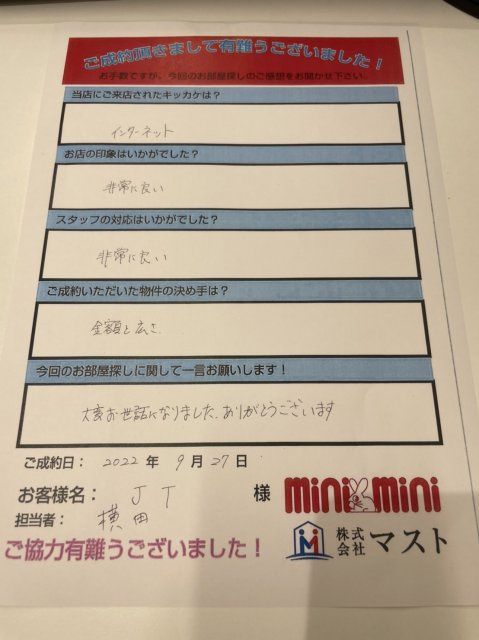 ご成約頂きまして有難うございました！
お手数ですが、今回のお部屋探しのご感想をお聞かせ下さい。
当店にご来店されたキッカケは？
インターネット
お店の印象はいかがでした？
非常に良い
スタッフの対応はいかがでした？
非常に良い
ご成約いただいた物件の決め手は？
金額と広さ
今回のお部屋探しに関して一言お願いします！
大変お世話になりました。ありがとうございます
ご成約日： 2022 年 9 月 27 日
お客様名： J T 様
担当者： 横田
minimini
株式会社 マスト
ご協力有難うございました！